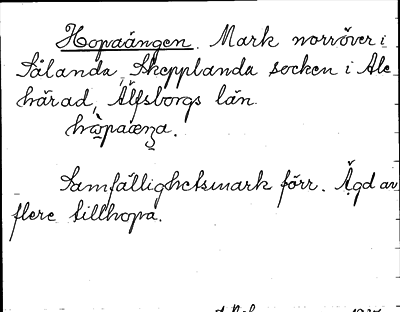 Hopaängen. Mark norröver i
Sålanda, Skepplanda socken i Ale
härad, Älfsborgs län.
Samfällighetsmark förr. Ägd av
flere tillhopa.